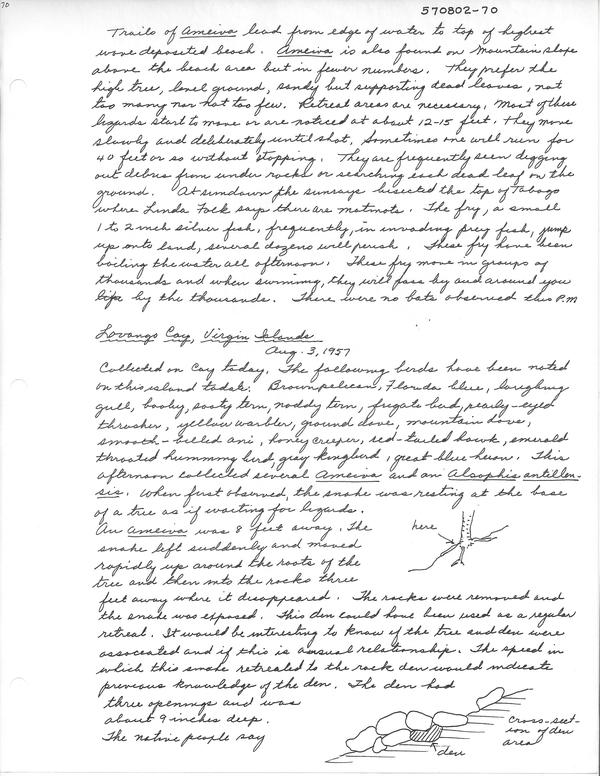 70
570802-70
Trails of Ameiva lead from edge of water to top of highest
wave deposited beach. Ameiva is also found on mountain slope
above the beach area but in fewer numbers. They prefer the
high tree, level ground, sandy but supporting dead leaves, not
too many nor not too few. Retreat areas are necessary. Most of these
lizards start to move or are noticed at about 12-15 feet. They move
slowly and deliberately until shot, sometimes one will run for
40 feet or so without stopping. They are frequently seen digging
out debris from under rocks or searching each dead leaf on the
ground. At sundown the sunrays bisected the top of Tobago
where Linda Folk says there are motmots. The fry, a small
1 to 2 inch silver fish, frequently, in invading prey fish, jump
up onto land, several dozens will perish. These fry have been
boiling the water all afternoon. These fry move in groups of
thousands and when swimming, they will pass by and around you
by the thousands. There were no bats observed this P.M
Lovango Cay, Virgin Islands
Aug. 3, 1957
Collected on Cay today. The following birds have been noted
on this island todate: Brown pelican, Florida blue, laughing
gull, booby, sooty tern, noddy tern, frigate bird, pearly-eyed
thrasher, yellow warbler, ground dove, mountain dove,
smooth-billed ani, honey creeper, red-tailed hawk, emerald
throated humming bird, gray kingbird, great blue heron. This
afternoon collected several Ameiva and an Alsophis antillen-
sis. When first observed, the snake was resting at the base
of a tree as if waiting for lizards.
An Ameiva was 8 feet away. The
here
snake left suddenly and moved
rapidly up around the roots of the
tree and then into the rocks three
feet away where it disappeared. The rocks were removed and
the snake was exposed. This den could have been used as a regular
retreat. It would be interesting to know if the tree and den were
associated and if this is a usual relationship. The speed in
which this snake retreated to the rock den would indicate
previous knowledge of the den. The den had
three openings and was
about 9 inches deep.
The native people say
Cross-sect-
ion of den
area
den